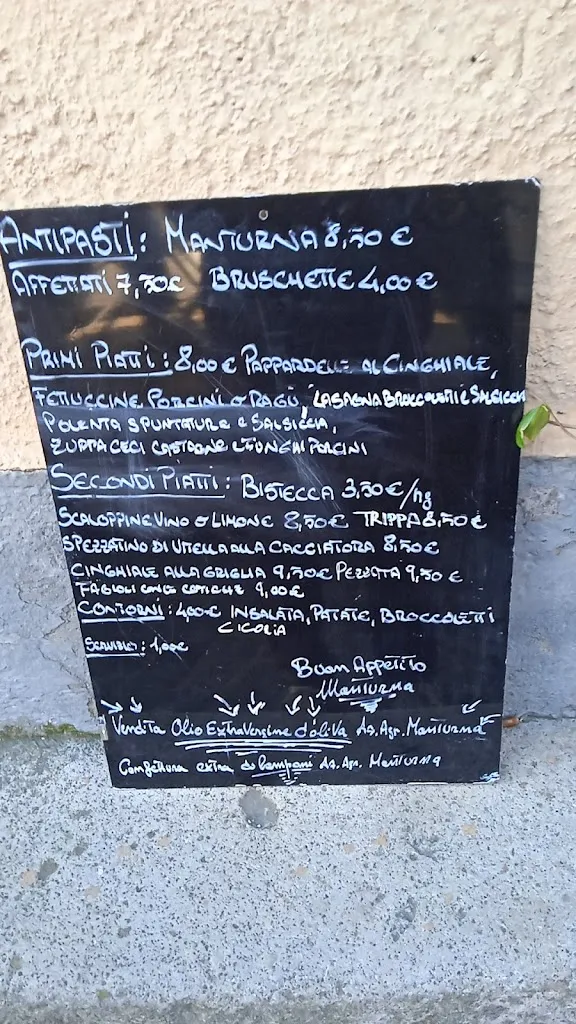 ANTIPASTI: MANTURNA 8,50 €
AFFETTATI 7,50€ BRUSCHETTE 4,00 €
PRIMI PIATTI: 8,00 € PAPPARDELLE AL CINGHIALE,
FETTUCCINE PORCINI O RAGÙ, LASAGNA BROCCOLETTI E SALSICCIA
POLENTA SPUNTATURE E SALSICCIA,
ZUPPA CECI CASTAGNE E FUNGHI PORCINI
SECONDI PIATTI: BISTECCA 3,50 €/hg
SCALOPPINE VINO O LIMONE 8,50€ TRIPPA 8,50 €
SPEZZATINO DI VITELLA ALLA CACCIATORA 8,50€
CINGHIALE ALLA GRIGLIA 9,50€ 9,50 €
FAGIOLI CON LE COTICHE 9,00 €
CONTORNI: 4,00€ INSALATA, PATATE, BROCCOLETTI
CICORIA
SERVIZIO: 1,00€
Buon Appetito
Manturna
Vendita Olio Extra Vergine d'oliva Az. Agr. Manturna
Confettura extra di lamponi Az. Agr. Manturna